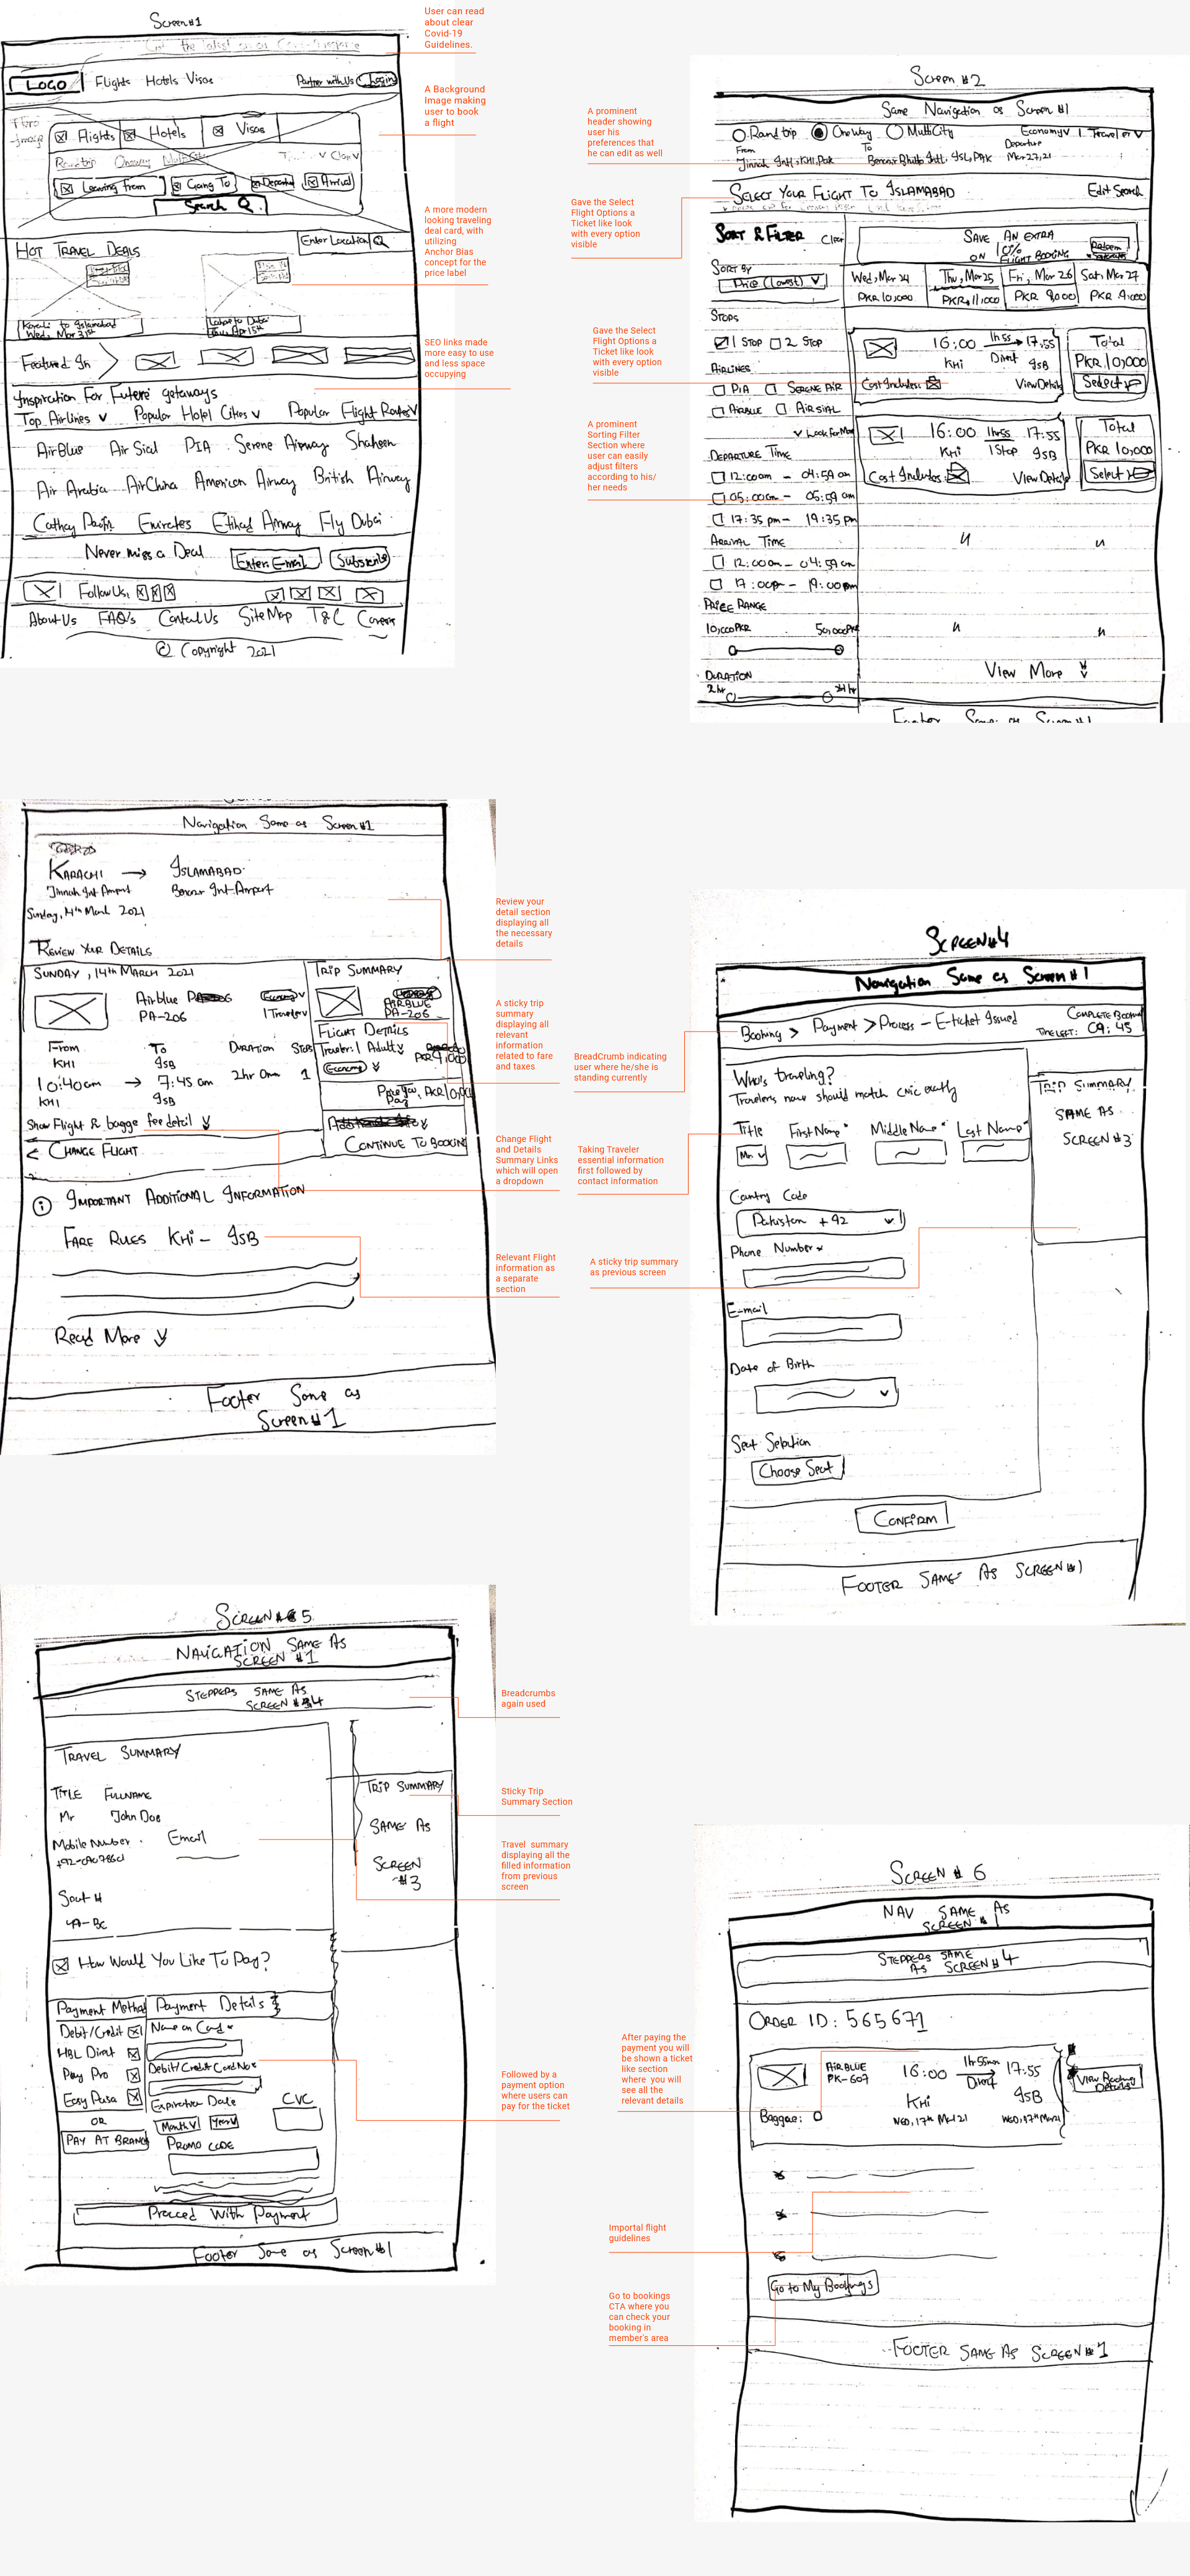 Screen #1
Get the latest on on Covid
LOGO Flights Hotels Visas Partner with Us Login
Hero
Image
Flights Hotels Visas
Roundtrip Oneway MultiCity
Leaving from Going To Departure Arrival
Search
HOT TRAVEL DEALS Enter Location
Karachi to Islamabad
Wed, Mar 31st
Lahore to Dubai
Featured In
Inspiration For Future getaways
Top Airlines Popular Hotel Cities Popular Flight Routes
AirBlue Air Sial PIA Serene Airway Shaheen
Air Arabia AirChina American Airway British Airway
Cathay Pacific Emirates Etihad Airway Fly Dubai
Never miss a Deal Enter Email Subscribe
Follow Us,
About Us FAQ's Contact Us Site Map T&C Careers
© Copyright 2021
User can read
about clear
Covid-19
Guidelines.
A Background
Image making
user to book
a flight
A more modern
looking traveling
deal card, with
utilizing
Anchor Bias
concept for the
price label
SEO links made
more easy to use
and less space
occupying
Screen #2
Same Navigation as Screen #1
Round trip One Way MultiCity Economy 1 Traveler
From To Departure
Jinnah Intl, KHI, Pak Benazir Bhutto Intl. ISL, PAK Mar 27, 21
SELECT YOUR FLIGHT TO ISLAMABAD Edit Search
SORT & FILTER Clear
SAVE AN EXTRA
ON 10% FLIGHT BOOKING
Redeem
SORT BY
Price (Lowest)
Wed, Mar 24 Thu, Mar 25 Fri, Mar 26 Sat, Mar 27
PKR 10,000 PKR 11,000 PKR 9,000 PKR 9,000
STOPS
1 STOP 2 STOP
AIRLINES
PIA SERENE AIR
AIRBLUE AIRSIAL
Look for More
DEPARTURE TIME
12:00am - 04:59 am
05:00am - 05:59 am
17:35 pm - 19:35 pm
ARRIVAL TIME
12:00am - 04:59 am
17:00pm - 19:00pm
PRICE RANGE
10,000PKR 50,000PKR
DURATION
2hr 24hr
16:00 1h55 17:55
KHI Direct ISB
Cost Includes: View Details
Total
PKR 10,000
Select
16:00 1h55 17:55
KHI 1 Stop ISB
Cost Includes: View Details
Total
PKR 10,000
Select
View More
Footer Same as Screen #1
A prominent
header showing
user his
preferences that
he can edit as well
Gave the Select
Flight Options a
Ticket like look
with every option
visible
Gave the Select
Flight Options a
Ticket like look
with every option
visible
A prominent
Sorting Filter
Section where
user can easily
adjust filters
according to his/
her needs
Navigation Same as Screen #1
KARACHI → ISLAMABAD
Jinnah Int Airport Benazir Int. Airport
Sunday, 14th March 2021
REVIEW YOUR DETAILS
SUNDAY, 14TH MARCH 2021
Airblue
PA-206
Economy
1 Traveler
From To DURATION STOPS
KHI ISB
10:40am → 7:45 am 2hr 0min 1
KHI ISB
Show Flight & bagge fee detail
< CHANGE FLIGHT
TRIP SUMMARY
AIRBLUE
PA-206
FLIGHT DETAILS
Traveler: 1 Adult PKR 9,000
Economy
Price You Pay, PKR 10,000
CONTINUE TO BOOKING
IMPORTANT ADDITIONAL INFORMATION
FARE RULES KHI - ISB
Read More
Footer Same as
Screen #1
Review your
detail section
displaying all
the necessary
details
A sticky trip
summary
displaying all
relevant
information
related to fare
and taxes
Change Flight
and Details
Summary Links
which will open
a dropdown
Relevant Flight
information as
a separate
section
SCREEN #4
Navigation Same as Screen #1
Booking > Payment > Process - E-ticket Issued
COMPLETE BOOKING
TIME LEFT: 09:45
Who's traveling?
Travelers name should match CNIC exactly
Title First Name* Middle Name* Last Name*
Mr
Country Code
Pakistan +92
Phone Number*
E-mail
Date of Birth
Seat Selection
Choose Seat
CONFIRM
TRIP SUMMARY
SAME AS
SCREEN #3
FOOTER SAME AS SCREEN #1
BreadCrumb indicating
user where he/she is
standing currently
Taking Traveler
essential information
first followed by
contact information
A sticky trip summary
as previous screen
SCREEN # 5
NAVIGATION SAME AS
SCREEN #1
STEPPERS SAME AS
SCREEN #4
TRAVEL SUMMARY
TITLE FULLNAME
Mr John Doe
Mobile Number Email
Seat #
4A-BC
How Would You Like To Pay?
Payment Method Payment Details
Debit/Credit
HBL Direct
Pay Pro
Easy Paisa
OR
PAY AT BRANCH
Name on Card*
Debit/Credit Card No*
Expiration Date CVC
Month Year
PROMO CODE
Proceed With Payment
TRIP SUMMARY
SAME AS
SCREEN
#3
Footer Same as Screen #1
Breadcrumbs
again used
Sticky Trip
Summary Section
Travel summary
displaying all the
filled information
from previous
screen
Followed by a
payment option
where users can
pay for the ticket
SCREEN # 6
NAV SAME AS
SCREEN # 1
STEPPERS SAME
AS SCREEN #4
ORDER ID: 565671
AIRBLUE
PK-607
16:00 1h 55min 17:55
Direct
KHI ISB
WED, 17th Mar 21 WED, 17th Mar 21
Baggae:
View Booking
Details
Go to My Bookings
FOOTER SAME AS SCREEN #1
After paying the
payment you will
be shown a ticket
like section
where you will
see all the
relevant details
Importal flight
guidelines
Go to bookings
CTA where you
can check your
booking in
member's area